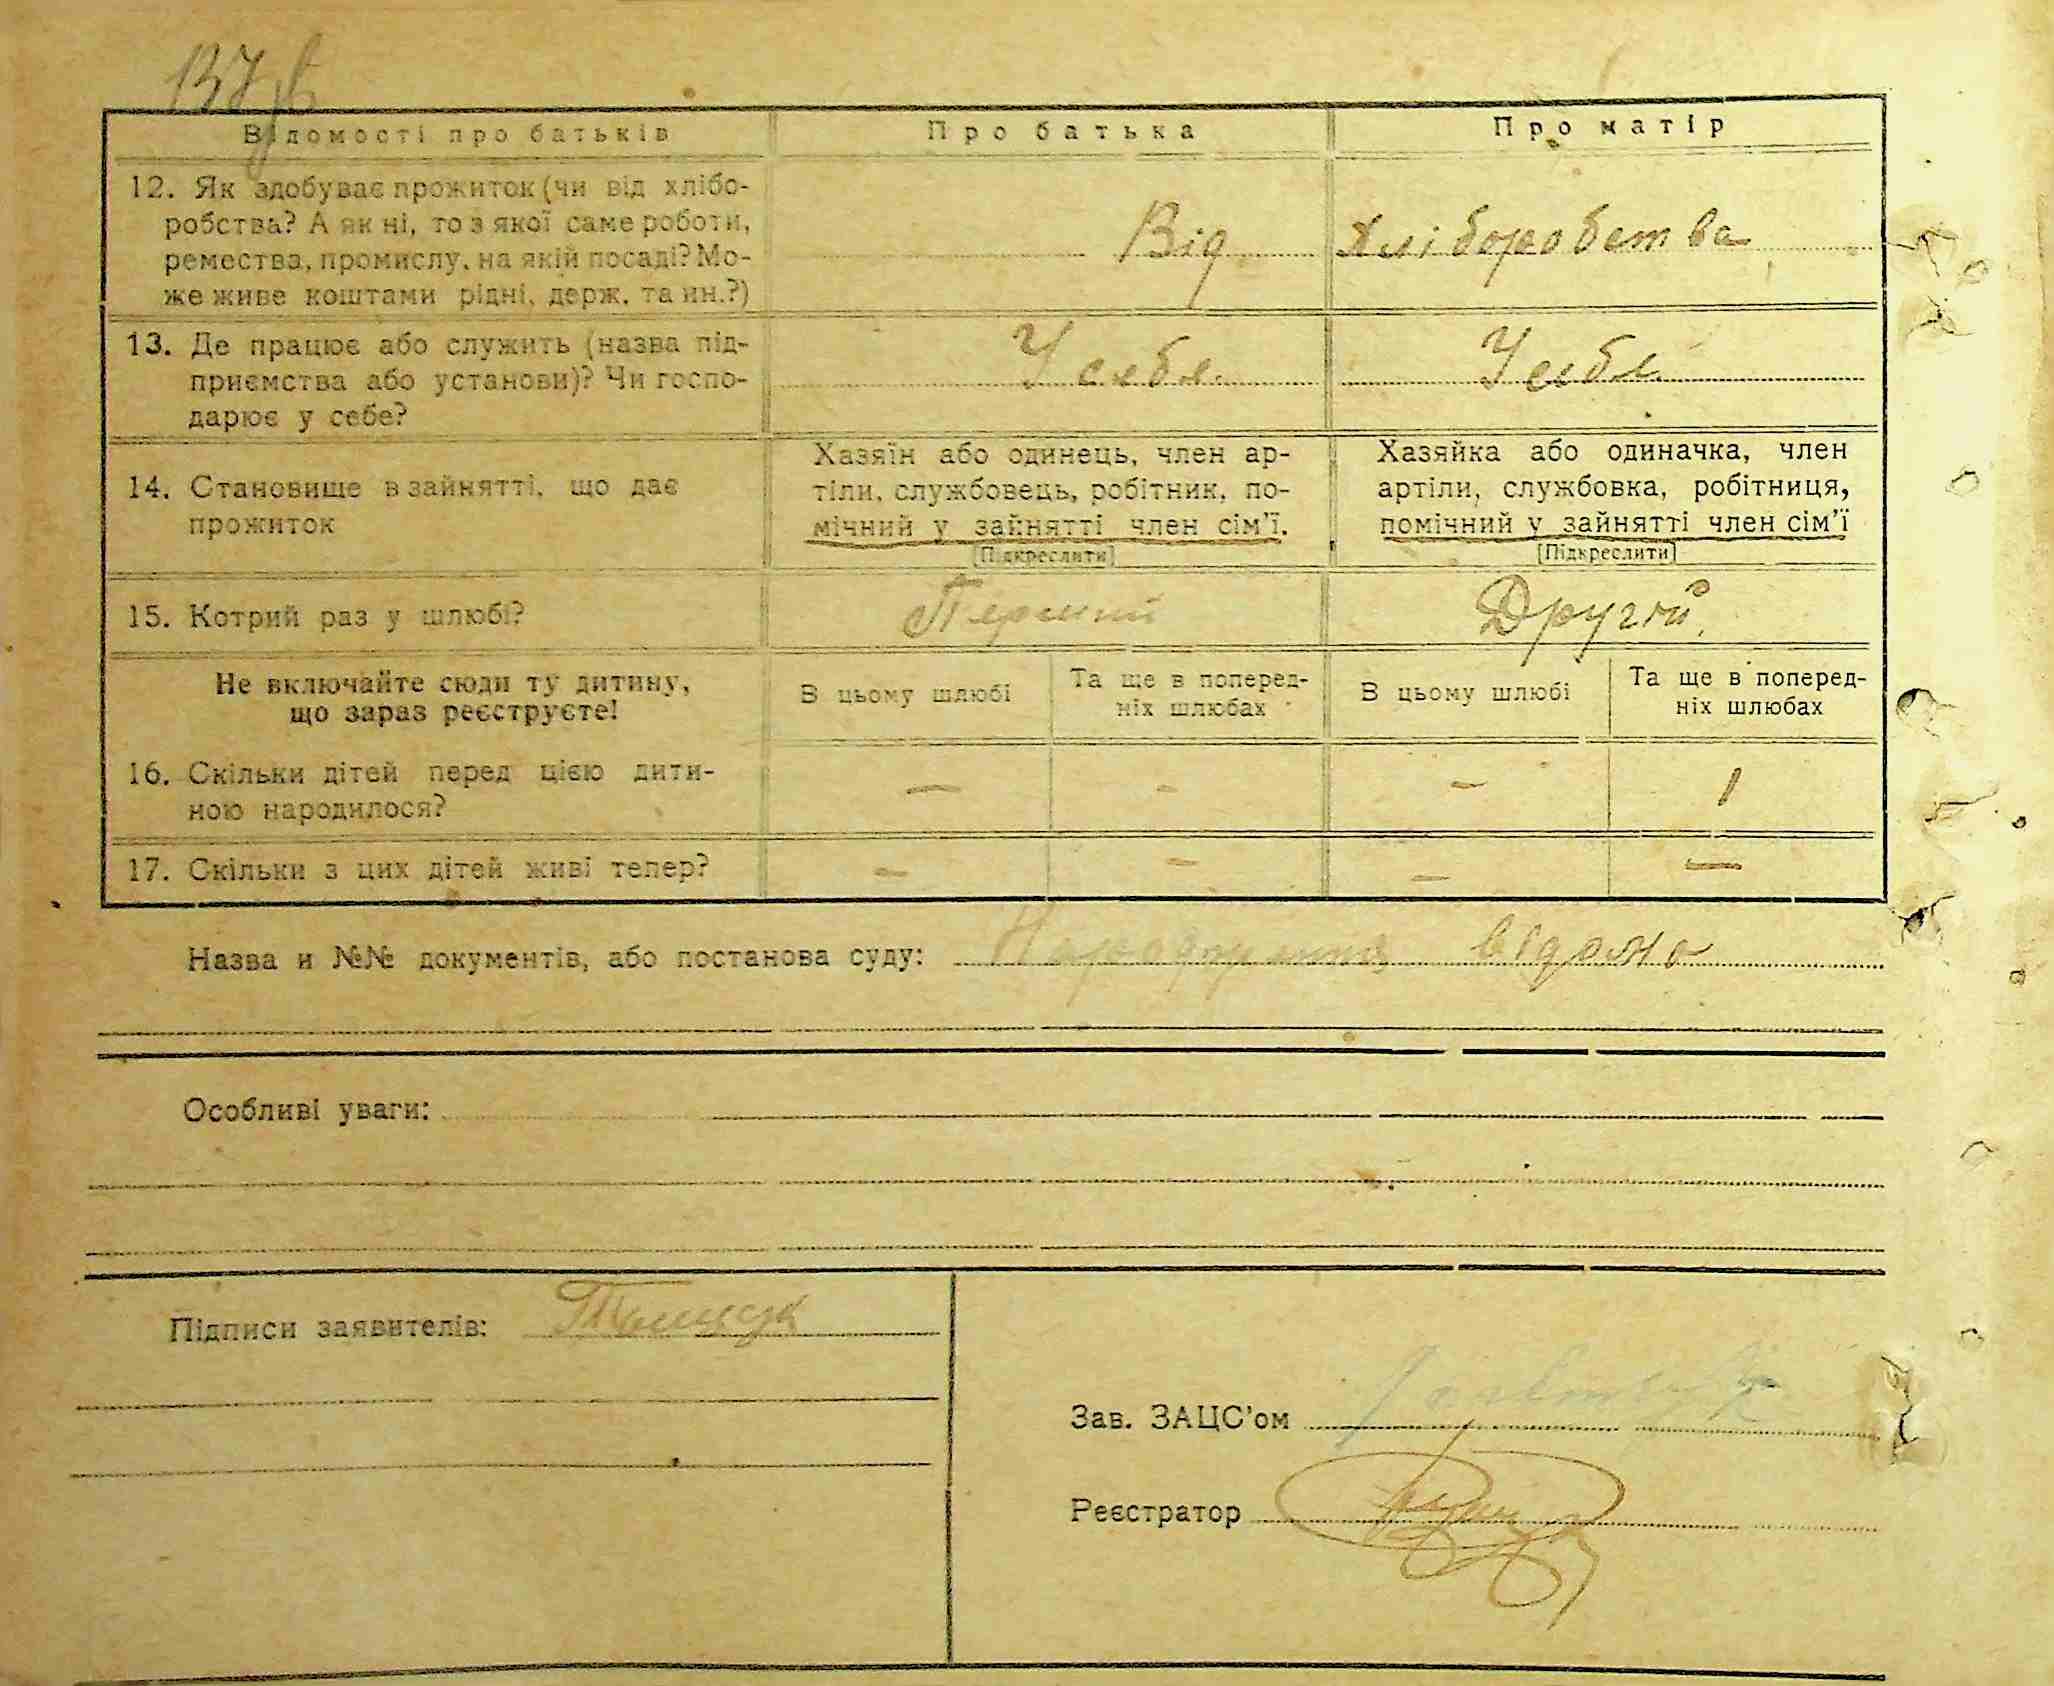 137
Відомості про батьків
Про батька
Про матір
12. Як здобуває прожиток (чи від хлібо-
робства? А як ні, то з якої саме роботи,
ремества, промислу, на якій посаді? Мо-
же живе коштами рідні, держ. та ин.?)
Від хліборобства
13. Де працює або служить (назва під-
приємства або установи)? Чи госпо-
дарює у себе?
У себе
У себе
14. Становище в зайнятті, що дає
прожиток
Хазяїн або одинець, член ар-
тіли, службовець, робітник, по-
мічний у зайнятті член сім'ї.
[Підкреслити]
Хазяйка або одиначка, член
артіли, службовка, робітниця,
помічний у зайнятті член сім'ї
[Підкреслити]
15. Котрий раз у шлюбі?
Перший
Другий
Не включайте сюди ту дитину,
що зараз реєструєте!
В цьому шлюбі
Та ще в поперед-
ніх шлюбах
В цьому шлюбі
Та ще в поперед-
ніх шлюбах
16. Скільки дітей перед цією дити-
ною народилося?
— - - 1
17. Скільки з цих дітей живі тепер?
- - - —
Назва и №№ документів, або постанова суду: відомо
Особливі уваги:
Підписи заявителів:
Зав. ЗАЦС'ом
Реєстратор